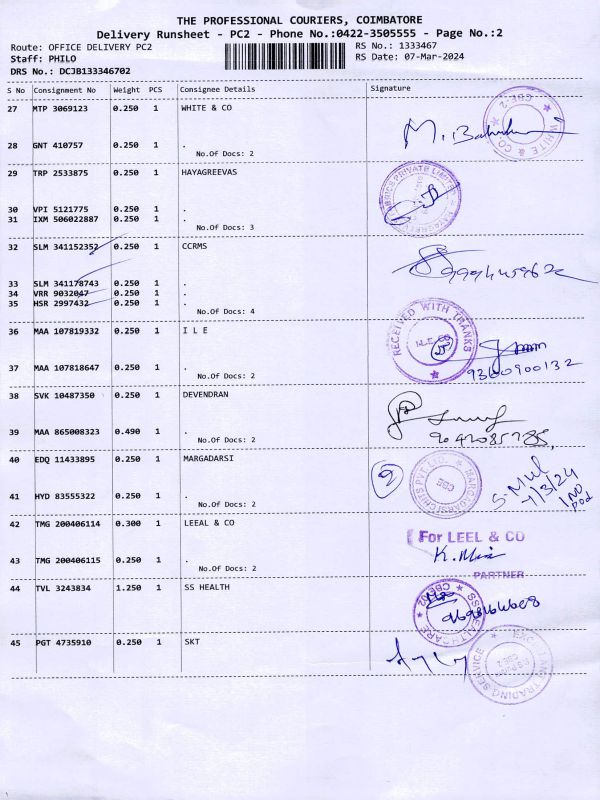 THE PROFESSIONAL COURIERS, COIMBATORE
Delivery Runsheet - PC2 - Phone No.:0422-3505555 - Page No.:2
Route: OFFICE DELIVERY PC2 RS No.: 1333467
Staff: PHILO RS Date: 07-Mar-2024
DRS No.: DCJB133346702
S No Consignment No Weight PCS Consignee Details Signature
27 MTP 3069123 0.250 1 WHITE & CO
28 GNT 410757 0.250 1 .
No.Of Docs: 2
29 TRP 2533875 0.250 1 HAYAGREEVAS
30 VPI 5121775 0.250 1 .
31 IXM 506022887 0.250 1 .
No.Of Docs: 3
32 SLM 341152352 0.250 1 CCRMS
33 SLM 341178743 0.250 1 .
34 VRR 9032047 0.250 1 .
35 HSR 2997432 0.250 1 .
No.Of Docs: 4
RECEIVED WITH THANKS
36 MAA 107819332 0.250 1 I L E
37 MAA 107818647 0.250 1 .
No.Of Docs: 2
9360900132
38 SVK 10487350 0.250 1 DEVENDRAN
39 MAA 865008323 0.490 1 .
No.Of Docs: 2
40 EDQ 11433895 0.250 1 MARGADARSI
2
41 HYD 83555322 0.250 1 .
No.Of Docs: 2
42 TMG 200406114 0.300 1 LEEAL & CO
For LEEL & CO
43 TMG 200406115 0.250 1 .
No.Of Docs: 2
PARTNER
44 TVL 3243834 1.250 1 SS HEALTH
45 PGT 4735910 0.250 1 SKT